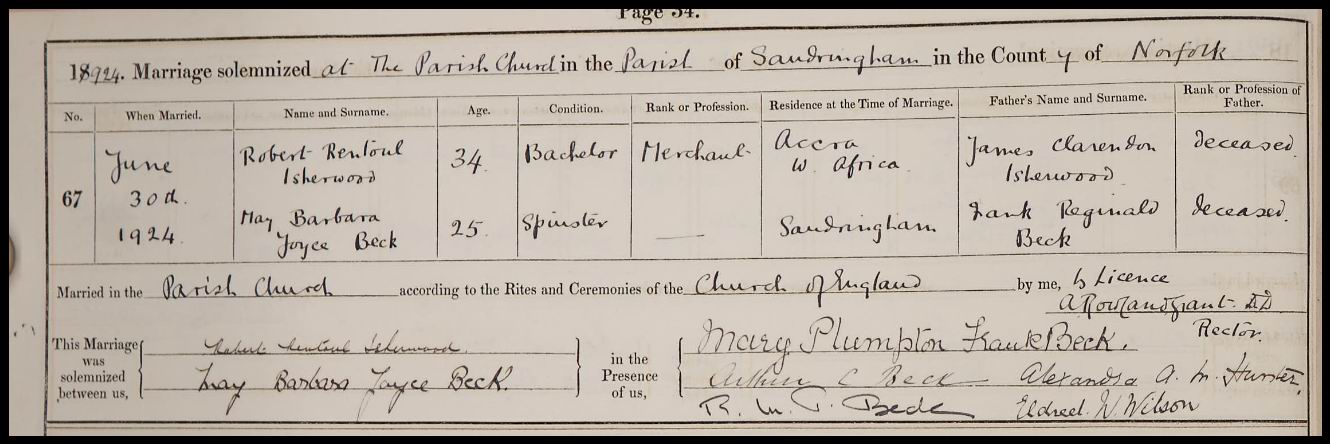 Page 34.
18924. Marriage solemnized at The Parish Church in the Parish of Sandringham in the County of Norfolk
No. When Married. Name and Surname. Age. Condition. Rank or Profession. Residence at the Time of Marriage. Father's Name and Surname. Rank or Profession of Father.
67 June 30th. 1924. Robert Rentoul Isherwood 34. Bachelor Merchant Accra W. Africa. James Clarendon Isherwood deceased.
May Barbara Joyce Beck 25. Spinster — Sandringham Frank Reginald Beck deceased.
Married in the Parish Church according to the Rites and Ceremonies of the Church of England by me, by Licence
A Rowland Grant. DD
Rector.
This Marriage was solemnized between us, Robert Rentoul Isherwood.
May Barbara Joyce Beck.
in the Presence of us, Mary Plumpton Frank Beck.
Arthur C Beck Alexandra A. M.
R. M. P. Beck Eldred. W. Wilson